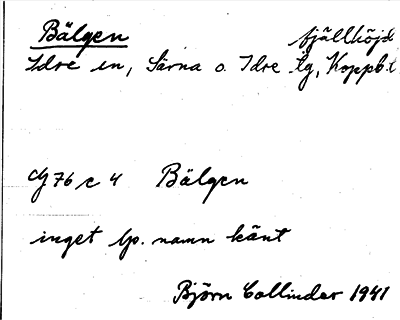 Bälgen fjällhöjd
Idre sn, Särna o. Idre tg, Koppb.
76 c 4 Bälgen
inget lp. namn känt
Björn Collinder 1941